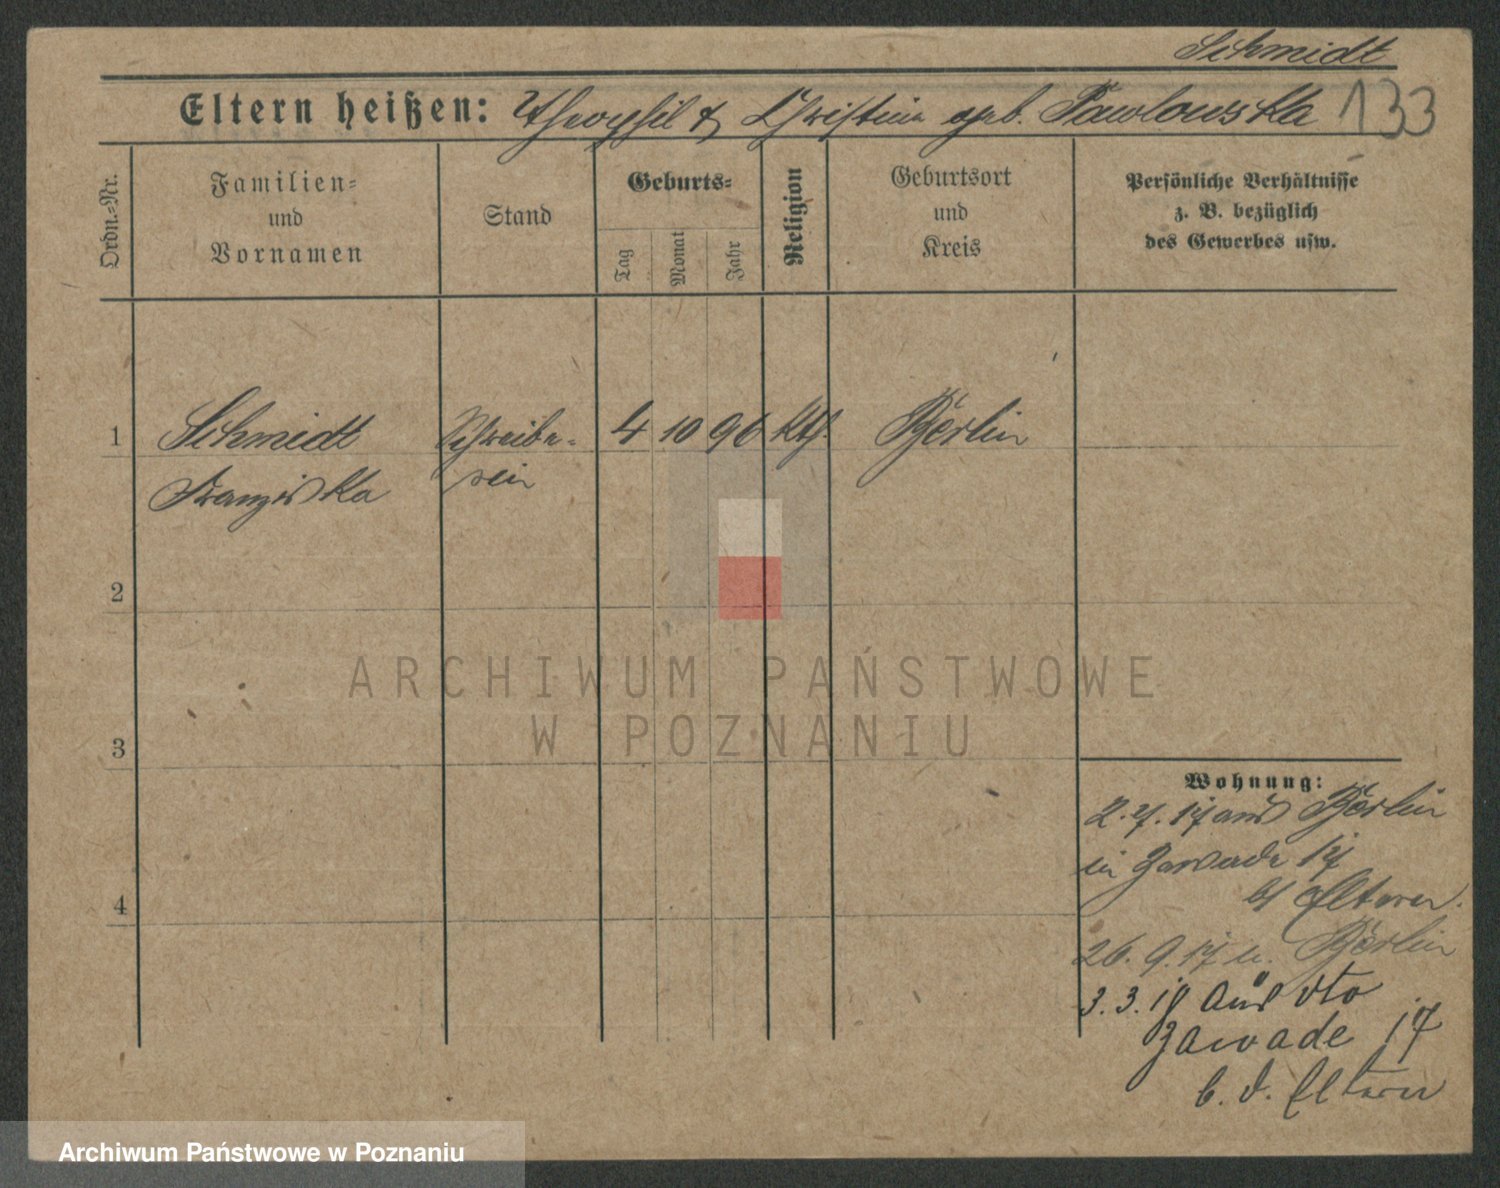 Schmidt
Eltern heißen: Theophil & Christine geb. Pawlowska 133
Ordn.-Nr.
Familien-
und
Vornamen
Stand
Geburts-
Tag
Monat
Jahr
Religion
Geburtsort
und
Kreis
Persönliche Verhältnisse
z. B. bezüglich
des Gewerbes usw.
1 Schmidt Schreibe- 4 10 96 kth. Berlin
Franziska rin
2
3
4
ARCHIWUM PAŃSTWOWE
W POZNANIU
Wohnung:
2.7.17 aus Berlin
in Zawade 17
b/ Eltern.
26.9.17 n. Berlin
3.3.19 aus dto
Zawade 17
b. d. Eltern
Archiwum Państwowe w Poznaniu